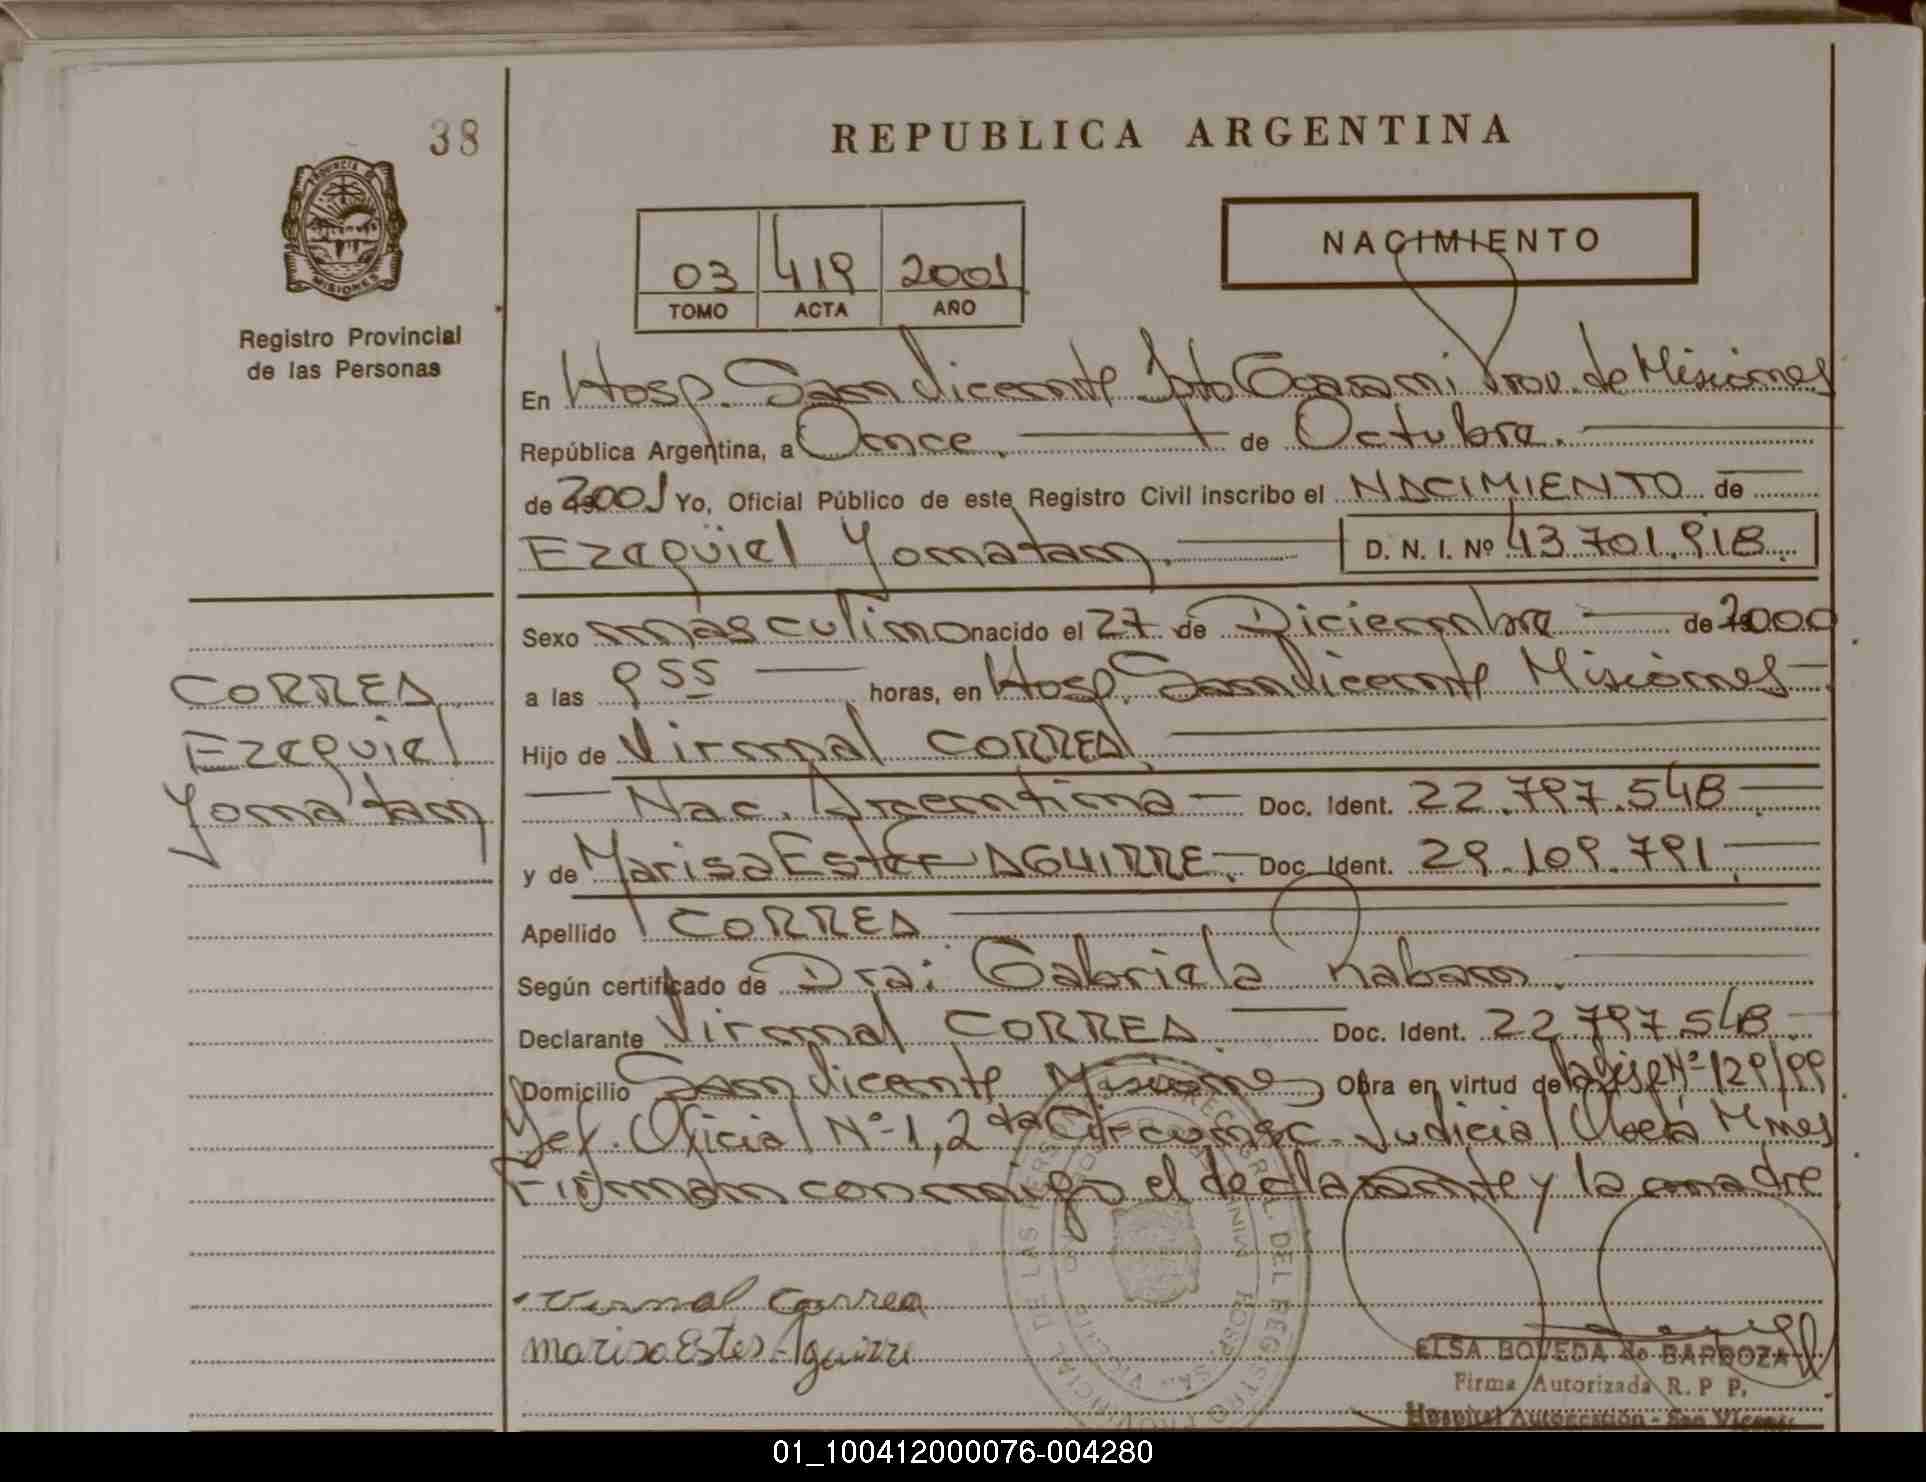 38
REPUBLICA ARGENTINA
PROVINCIA DE
MISIONES
Registro Provincial
de las Personas
03 419 2001
TOMO ACTA AÑO
NACIMIENTO
En Hosp. San Vicente Dpto Guarani Prov. de Misiones
República Argentina, a Once. de Octubre.
de 2001 Yo, Oficial Público de este Registro Civil inscribo el NACIMIENTO de
Ezequiel Yonatan. D. N. I. Nº 43.701.918.
Sexo masculino nacido el 27 de Diciembre de 2000
a las 9 55 horas, en Hosp. San Vicente Misiones
CORREA
Ezequiel
Yonatan
Hijo de Virmal CORREA
Nac. Argentina Doc. Ident. 22.797.548
y de Marisa Ester AGUIRRE. Doc. Ident. 29.109.791
Apellido CORREA
Según certificado de Dra: Gabriela
Declarante Virmal CORREA Doc. Ident. 22.797.548
Domicilio San Vicente Misiones Obra en virtud de la Disp Nº 129/99
Jef. Oficial Nº 1, 2da Circunsc. Judicial Oberá Mnes
Firman conmigo el declarante y la madre
Virmal Correa
Marisa Ester Aguirre
ELSA BOVEDA de BARBOZA
Firma Autorizada R. P. P.
Hospital Autogestión - San Vicente
01_100412000076-004280